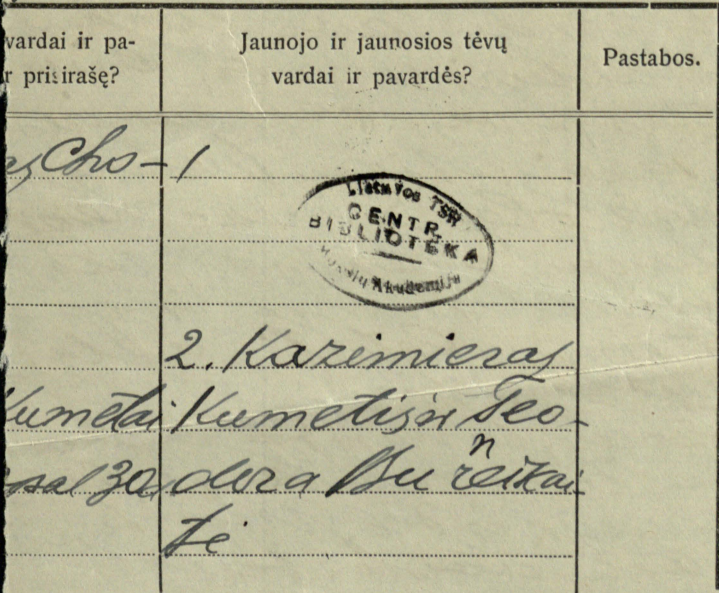 vardai ir pa-
r prisirašę?
Jaunojo ir jaunosios tėvų
vardai ir pavardės?
Pastabos.
Cho-
Lietuvos TSR
CENTR.
BIBLIOTEKA
Mokslų Akademija
2. Kazimieras
Kumetai Kumetis ir Teo-
dora Bu n
tė